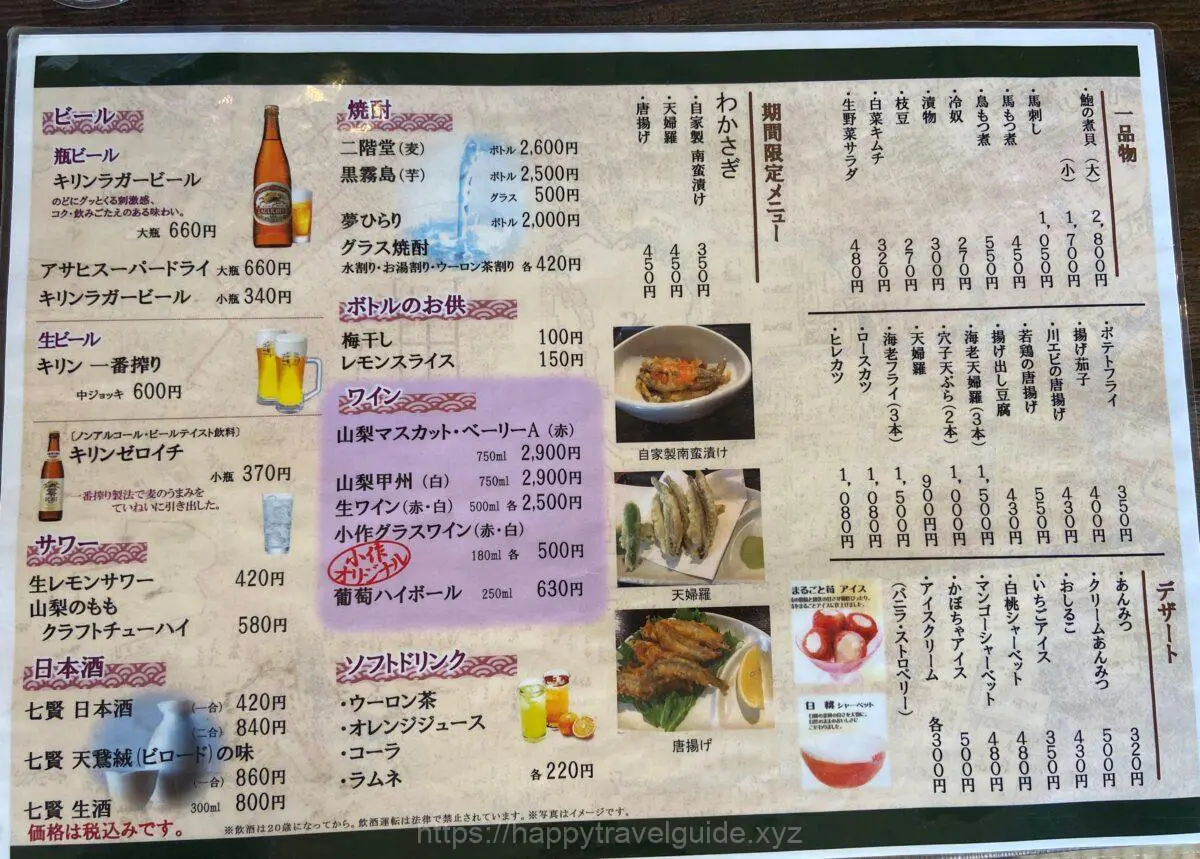 ビール
瓶ビール
キリンラガービール
のどにグッとくる刺激感、
コク・飲みごたえのある味わい。
大瓶 660円
アサヒスーパードライ 大瓶 660円
キリンラガービール 小瓶 340円
生ビール
キリン 一番搾り
中ジョッキ 600円
〔ノンアルコール・ビールテイスト飲料〕
キリンゼロイチ
小瓶 370円
一番搾り製法で麦のうまみを
ていねいに引き出した。
サワー
生レモンサワー 420円
山梨のもも
クラフトチューハイ 580円
日本酒
七賢 日本酒 (一合) 420円
(二合) 840円
七賢 天鵞絨(ビロード)の味
(一合) 860円
七賢 生酒 300ml 800円
価格は税込みです。
焼酎
二階堂(麦) ボトル 2,600円
黒霧島(芋) ボトル 2,500円
グラス 500円
夢ひらり ボトル 2,000円
グラス焼酎
水割り・お湯割り・ウーロン茶割り 各 420円
ボトルのお供
梅干し 100円
レモンスライス 150円
ワイン
山梨マスカット・ベーリーA(赤)
750ml 2,900円
山梨甲州(白) 750ml 2,900円
生ワイン(赤・白) 500ml 各 2,500円
小作グラスワイン(赤・白)
180ml 各 500円
小作
オリジナル
葡萄ハイボール 250ml 630円
ソフトドリンク
・ウーロン茶
・オレンジジュース
・コーラ
・ラムネ
各 220円
※飲酒は20歳になってから。飲酒運転は法律で禁止されています。※写真はイメージです。
一品物
・鮑の煮貝(大) 2,800円
(小) 1,700円
・馬刺し 1,050円
・馬もつ煮 450円
・鳥もつ煮 550円
・冷奴 270円
・漬物 300円
・枝豆 270円
・白菜キムチ 320円
・生野菜サラダ 480円
期間限定メニュー
わかさぎ
・自家製 南蛮漬け 350円
・天婦羅 450円
・唐揚げ 450円
自家製南蛮漬け
天婦羅
唐揚げ
・ポテトフライ 350円
・揚げ茄子 400円
・川エビの唐揚げ 430円
・若鶏の唐揚げ 550円
・揚げ出し豆腐 430円
・海老天婦羅(3本) 1,500円
・穴子天ぷら(2本) 1,000円
・天婦羅 900円
・海老フライ(3本) 1,500円
・ロースカツ 1,080円
・ヒレカツ 1,080円
デザート
・あんみつ 320円
・クリームあんみつ 500円
・おしるこ 430円
・いちごアイス 350円
・白桃シャーベット 480円
・マンゴーシャーベット 480円
・かぼちゃアイス 500円
・アイスクリーム 各300円
(バニラ・ストロベリー)
まるごと苺 アイス
白桃 シャーベット
https://happytravelguide.xyz